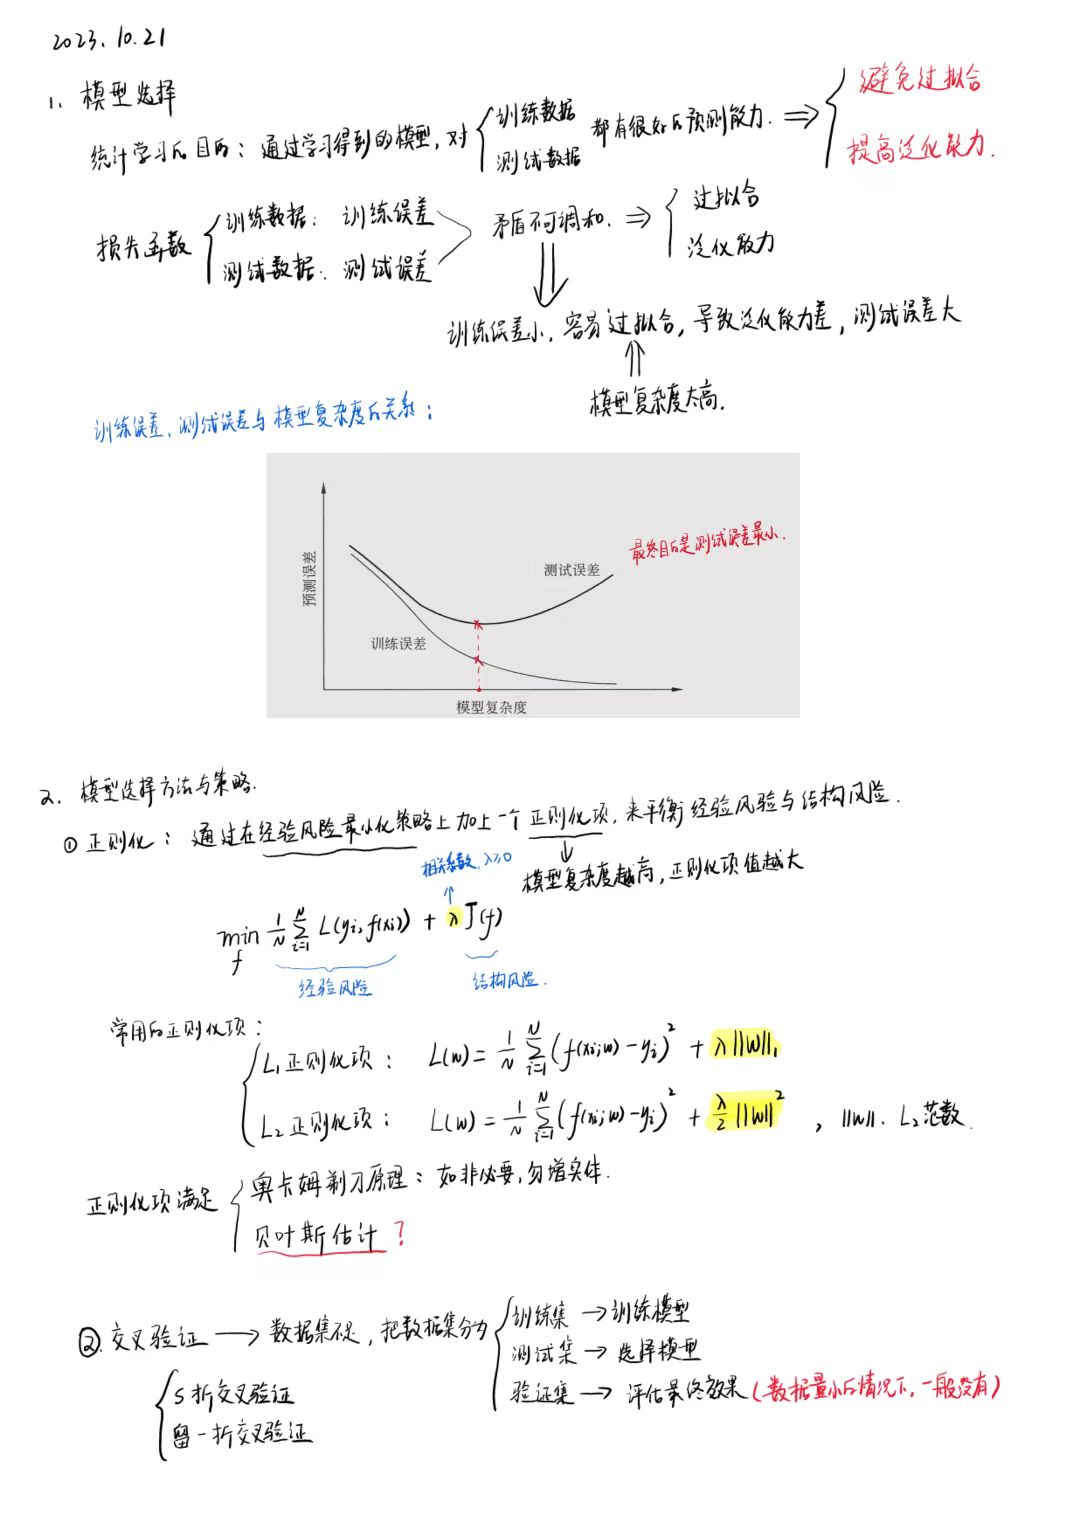 2023.10.21
1、模型选择
统计学习的目的：通过学习得到的模型，对{训练数据 测试数据 都有很好的预测能力. ⇒ {避免过拟合 提高泛化能力.
损失函数 {训练数据: 训练误差 测试数据: 测试误差 矛盾不可调和. ⇒ {过拟合 泛化能力
训练误差小，容易过拟合，导致泛化能力差，测试误差大
模型复杂度太高.
训练误差、测试误差与模型复杂度的关系：
最终目的是测试误差最小.
预测误差
测试误差
训练误差
模型复杂度
2、模型选择方法与策略.
①正则化：通过在经验风险最小化策略上加上一个正则化项，来平衡经验风验与结构风险.
相关系数，λ≥0
模型复杂度越高，正则化项值越大
min f 1/N ∑ i=1 N L(yi, f(xi)) + λJ(f)
经验风险
结构风险.
常用的正则化项：
L1正则化项： L(w) = 1/N ∑ i=1 N (f(xi;w) - yi)² + λ||w||₁
L2正则化项： L(w) = 1/N ∑ i=1 N (f(xi;w) - yi)² + λ/2 ||w||² ，||w||. L2范数.
正则化项满足 {奥卡姆剃刀原理：如非必要，勿增实体.
贝叶斯估计？
②交叉验证 → 数据集不足，把数据集分为
训练集 → 训练模型
测试集 → 选择模型
验证集 → 评估最终效果（数据量小的情况下，一般没有）
S折交叉验证
留一折交叉验证